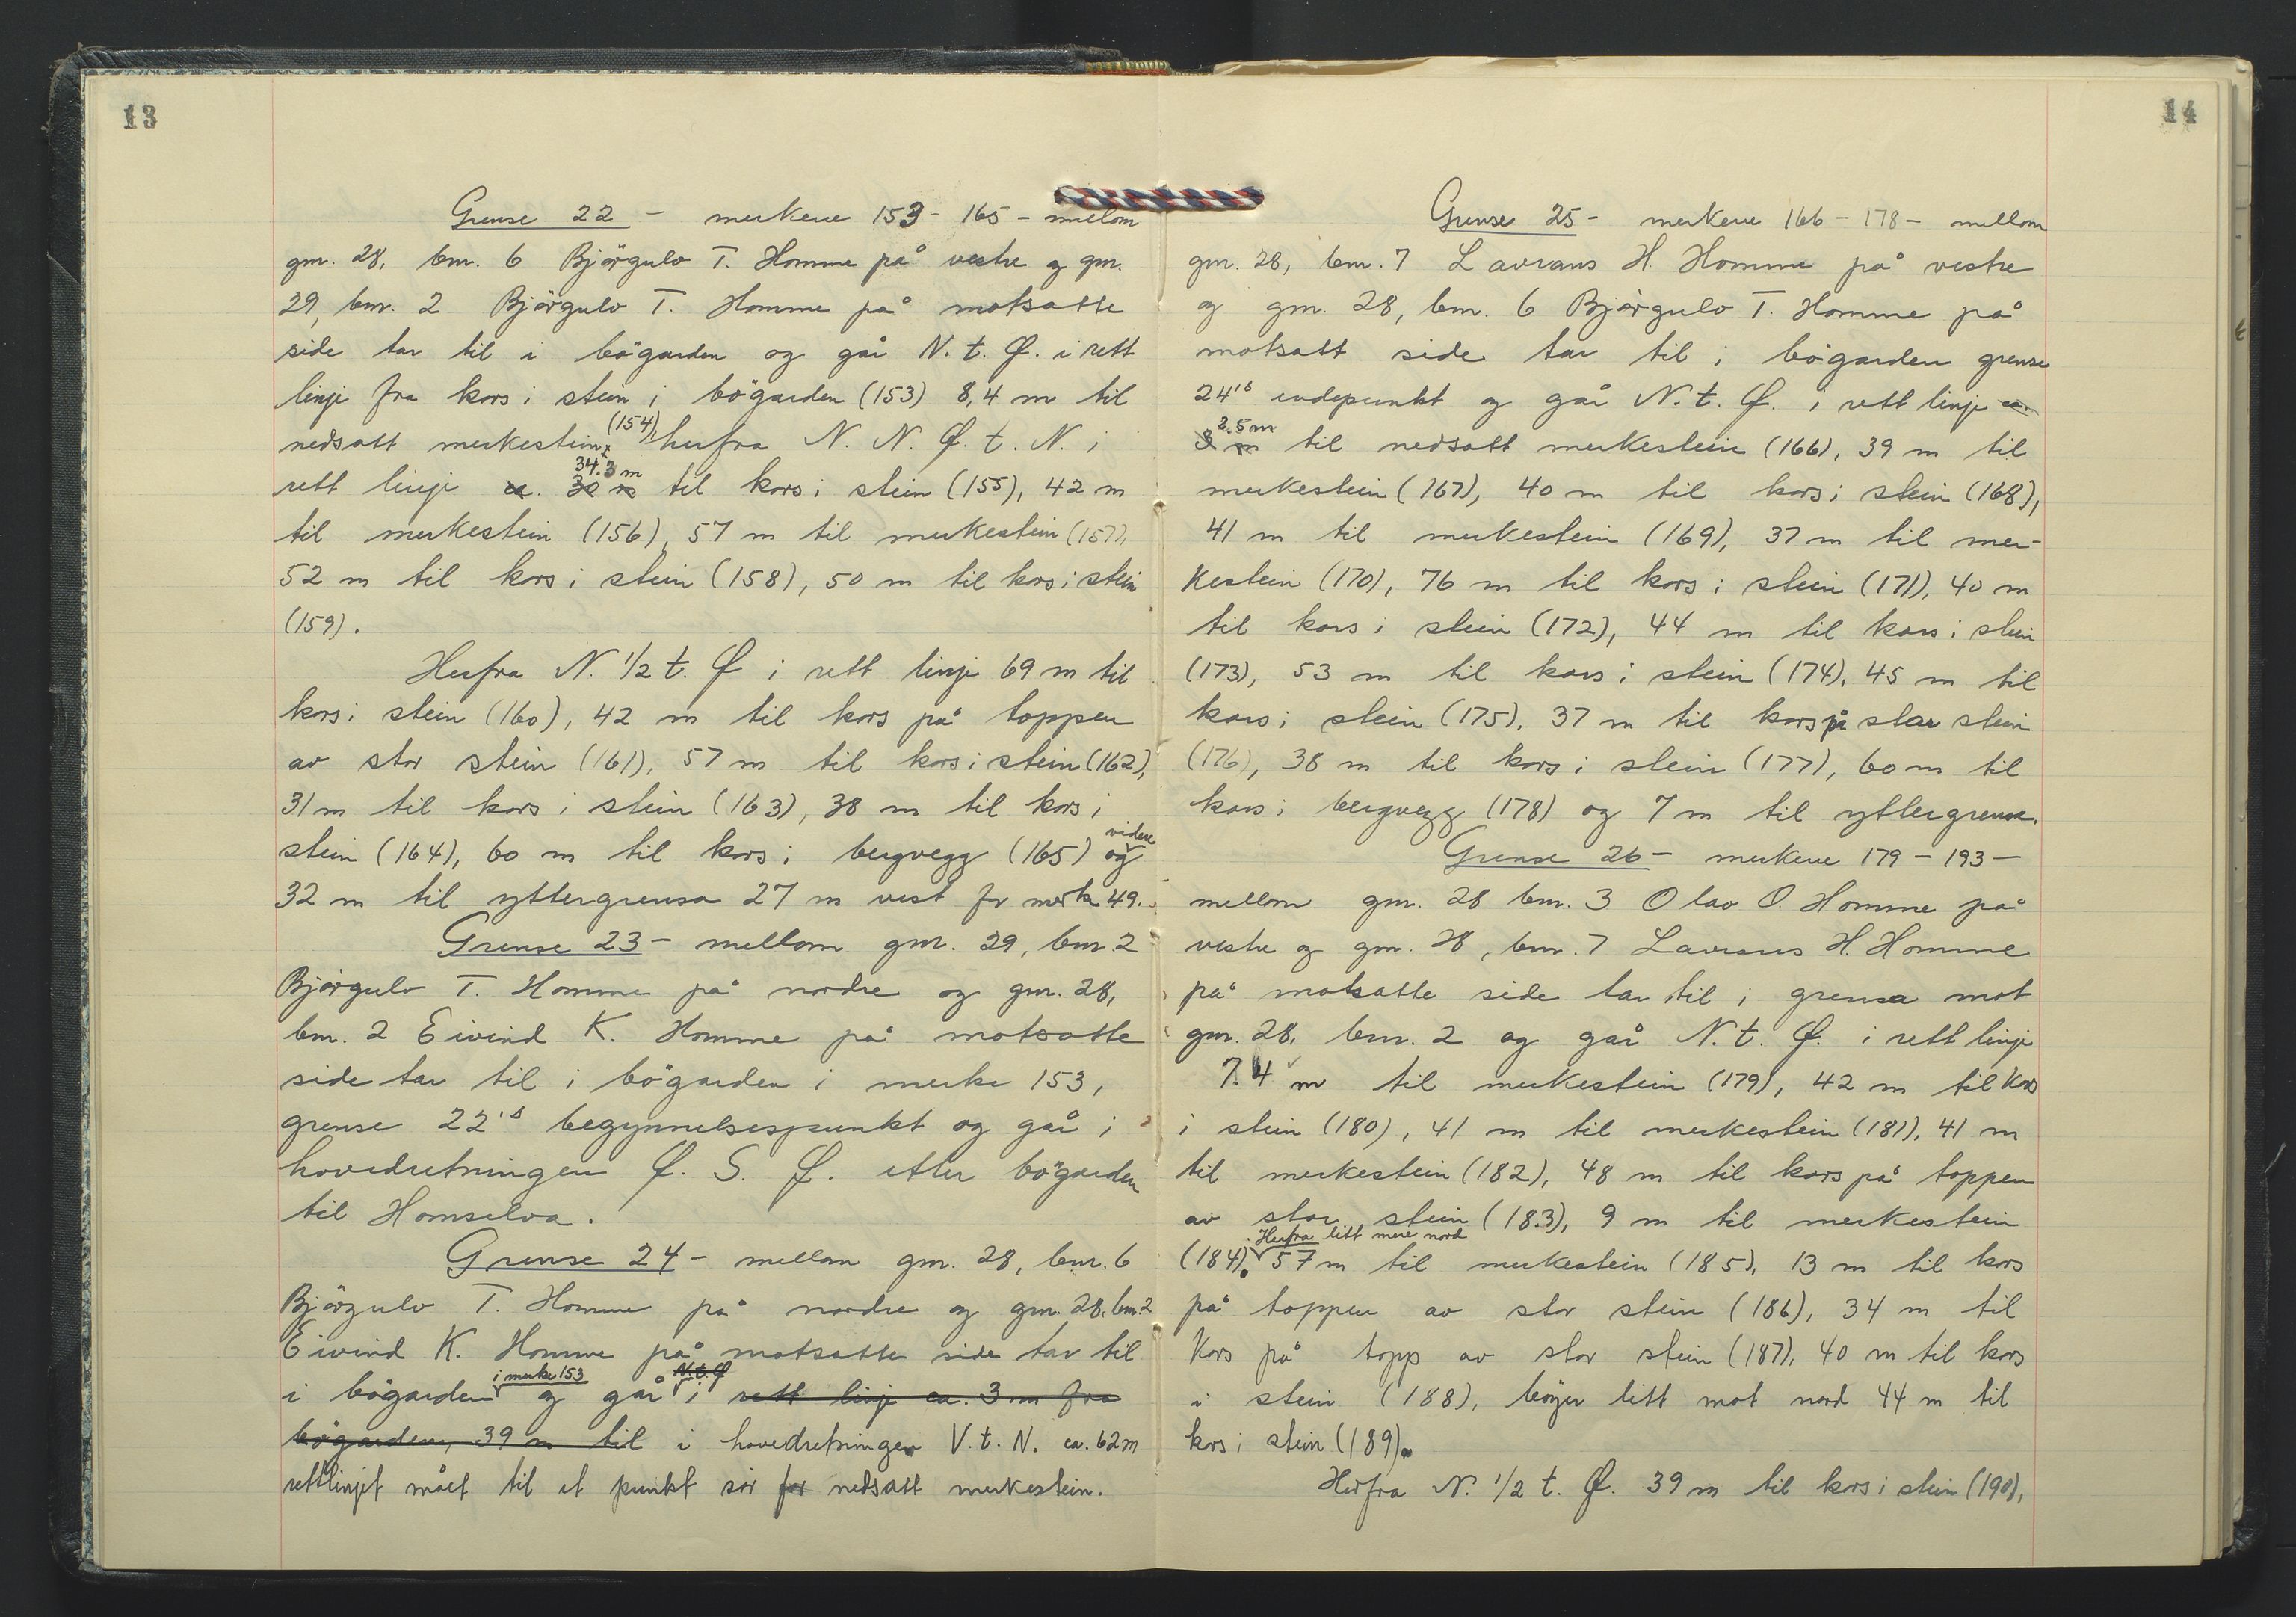 13
Grense 22 – merkene 153 – 165 – mellom
gnr. 28, bnr. 6 Bjørgulv T. Homme på vestre og gnr.
29, bnr. 2 Bjørgulv T. Homme på motsatte
side tar til i bøgarden og går N. t. Ø. i rett
linje fra kors i stein i bøgarden (153) 8,4 m til
nedsatt merkestein (154), herfra N. N. Ø. t. N. i
rett linje ca. 30 m 34.3 m til kors i stein (155), 42 m
til merkestein (156), 57 m til merkestein (157),
52 m til kors i stein (158), 50 m til kors i stein
(159).
Herfra N. 1/2 t. Ø i rett linje 69 m til
kors i stein (160), 42 m til kors på toppen
av stor stein (161), 57 m til kors i stein (162),
31 m til kors i stein (163), 38 m til kors i
stein (164), 60 m til kors i bergvegg (165) og videre
32 m til yttergrensa 27 m vest for merke 49.
Grense 23 – mellom gnr. 29, bnr. 2
Bjørgulv T. Homme på nordre og gnr. 28,
bnr. 2 Eivind K. Homme på motsatte
side tar til i bøgarden i merke 153,
grense 22's begynnelsespunkt og går i
hovedretningen Ø. S. Ø. etter bøgarden
til Homselva.
Grense 24 – mellom gnr. 28, bnr. 6
Bjørgulv T. Homme på nordre og gnr. 28, bnr. 2
Eivind K. Homme på motsatte side tar til
i bøgarden i merke 153 og går N. t. Ø i rett linje ca. 3 m fra
bøgarden, 39 m til i hovedretningen V. t. N. ca. 62 m
rettlinjet målt til et punkt sør for nedsatt merkestein.
14
Grense 25 – merkene 166 – 178 – mellom
gnr. 28, bnr. 7 Lavrans H. Homme på vestre
og gnr. 28, bnr. 6 Bjørgulv T. Homme på
motsatt side tar til i bøgarden grense
24's endepunkt og går N. t. Ø. i rett linje ca.
3 m 2.5 m til nedsatt merkestein (166), 39 m til
merkestein (167), 40 m til kors i stein (168),
41 m til merkestein (169), 37 m til mer-
kestein (170), 76 m til kors i stein (171), 40 m
til kors i stein (172), 44 m til kors i stein
(173), 53 m til kors i stein (174), 45 m til
kors i stein (175), 37 m til kors på stor stein
(176), 38 m til kors i stein (177), 60 m til
kors i bergvegg (178) og 7 m til yttergrensa.
Grense 26 – merkene 179 – 193 –
mellom gnr. 28 bnr. 3 Olav O. Homme på
vestre og gnr. 28, bnr. 7 Lavrans H. Homme
på motsatte side tar til i grensa mot
gnr. 28, bnr. 2 og går N. t. Ø. i rett linje
7.4 m til merkestein (179), 42 m til kors
i stein (180), 41 m til merkestein (181), 41 m
til merkestein (182), 48 m til kors på toppen
av stor stein (183), 9 m til merkestein
(184). Herfra litt mere nord 57 m til merkestein (185), 13 m til kors
på toppen av stor stein (186), 34 m til
kors på topp av stor stein (187), 40 m til kors
i stein (188), bøyer litt mot nord 44 m til
kors i stein (189).
Herfra N. 1/2 t. Ø. 39 m til kors i stein (190),